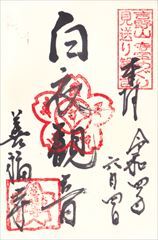 奉拝
令和四年
六月四日
白衣観音
善福寺
見送り